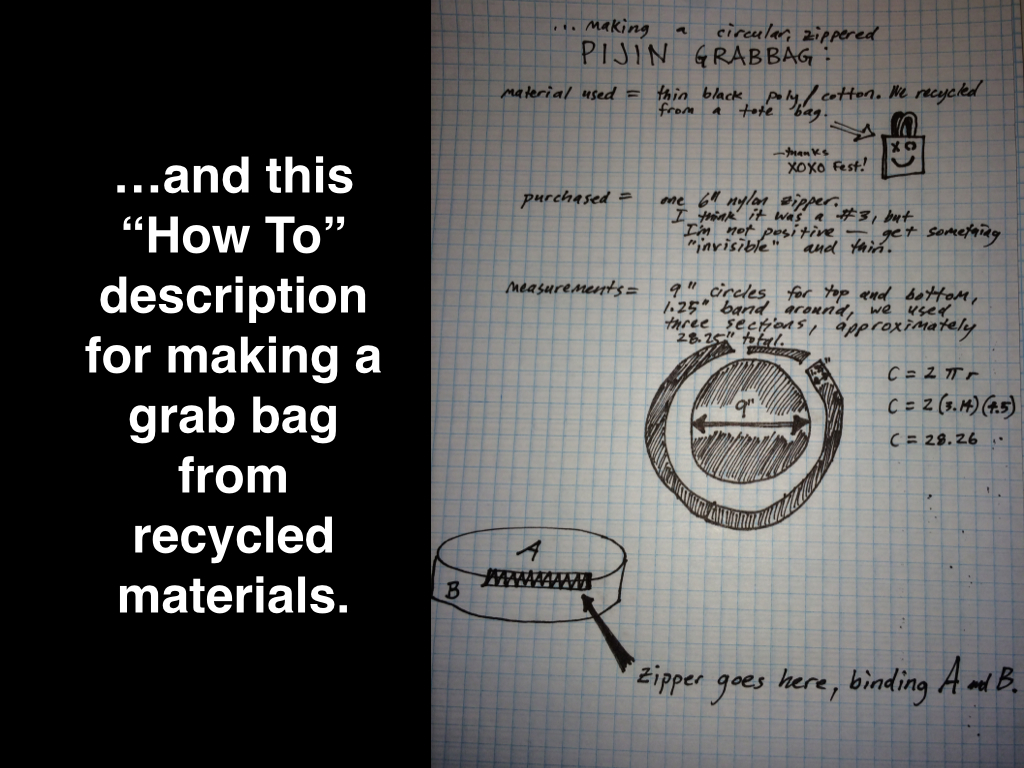 …and this
“How To”
description
for making a
grab bag
from
recycled
materials.
... making a circular, zippered
PIJIN GRABBAG:
material used = thin black poly/cotton. We recycled
from a tote bag.
—thanks
XOXO Fest!
purchased = one 6" nylon zipper.
I think it was a #3, but
I'm not positive — get something
"invisible" and thin.
measurements = 9" circles for top and bottom,
1.25" band around, we used
three sections, approximately
28.25" total.
9"
C = 2 π r
C = 2(3.14)(4.5)
C = 28.26
A
B
Zipper goes here, binding A and B.